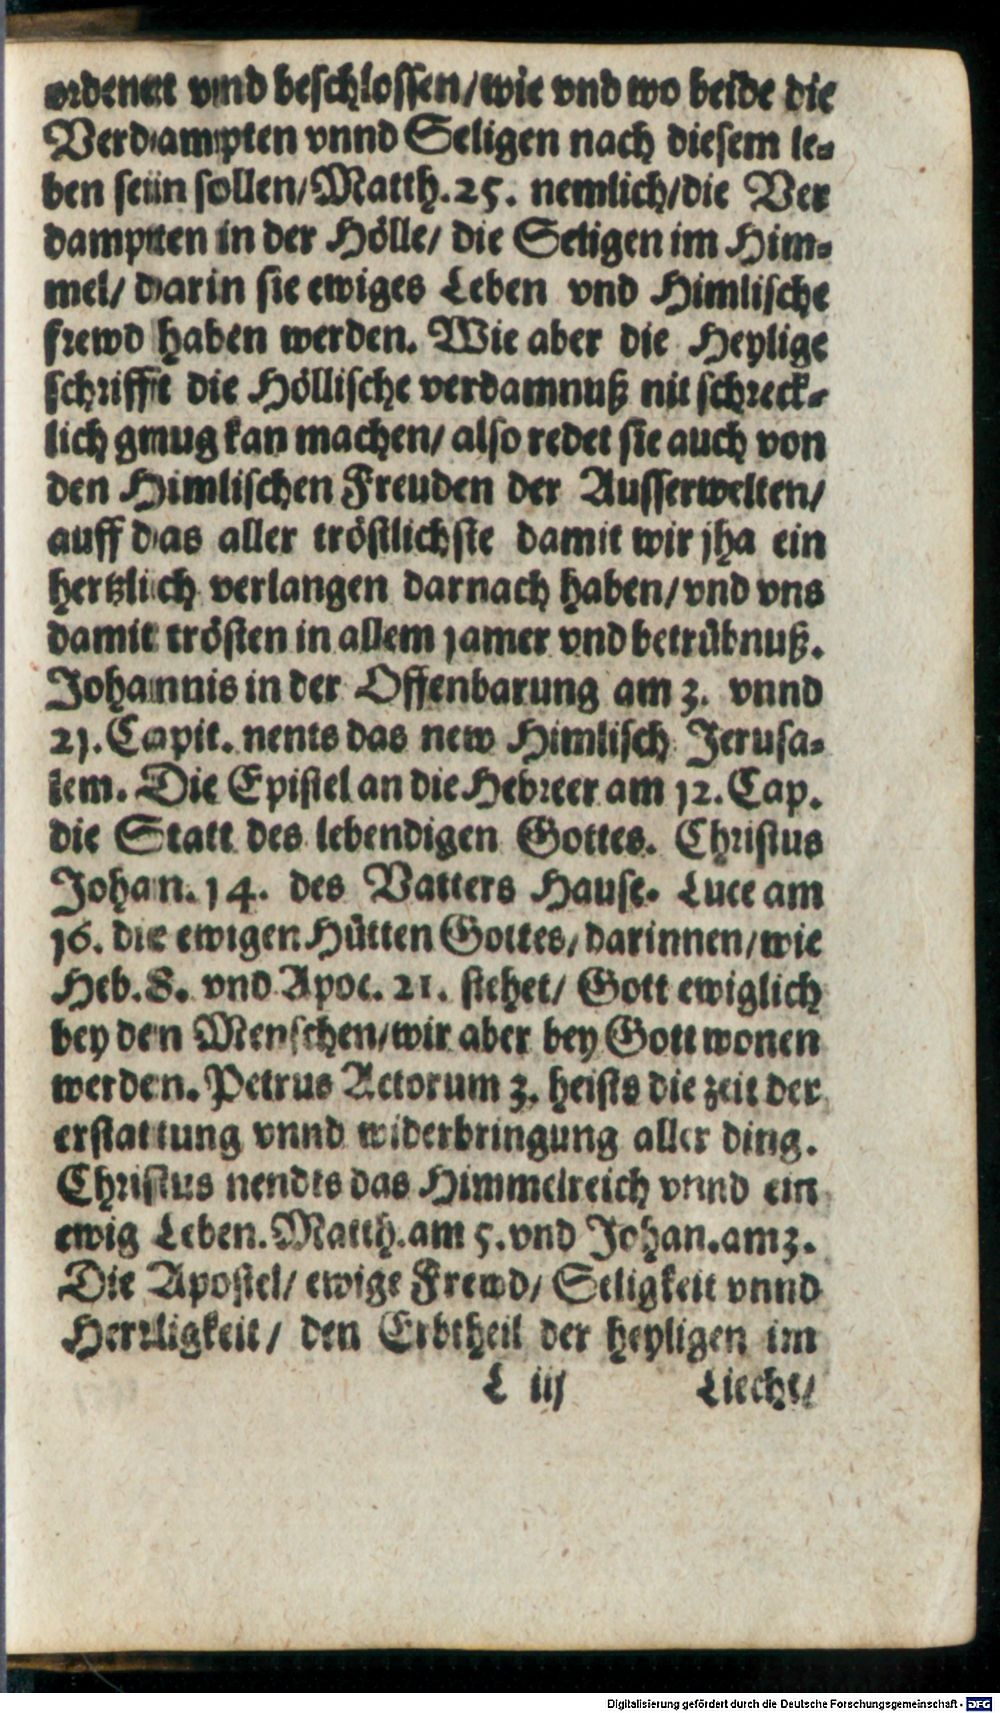 ordenet vnnd beschlossen/wie vnd wo beide die
Verdampten vnnd Seligen nach diesem le-
ben sein sollen/Matth.25. nemlich/die Ver
dampten in der Hölle/ die Seligen im Him-
mel/ darin sie ewiges Leben vnd Himlische
frewd haben werden. Wie aber die Heylige
schrifft die Höllische verdamnuß nit schreck-
lich gnug kan machen/ also redet sie auch von
den Himlischen Freuden der Ausserwelten/
auff das aller tröstlichste damit wir jha ein
hertzlich verlangen darnach haben/vnd vns
damit trösten in allem jamer vnd betrübnuß.
Johannis in der Offenbarung am 3. vnnd
21. Capit. nents das new Himlisch Jerusa-
lem. Die Epistel an die Hebreer am 12. Cap.
die Statt des lebendigen Gottes. Christus
Johan. 14. des Vatters Hause. Luce am
16. die ewigen Hütten Gottes/darinnen/wie
Heb. 8. vnd Apoc. 21. stehet/ Gott ewiglich
bey den Menschen/wir aber bey Gott wonen
werden. Petrus Actorum 3. heists die zeit der
erstattung vnnd widerbringung aller ding.
Christus nendts das Himmelreich vnnd ein
ewig Leben. Matth. am 5. vnd Johan. am 3.
Die Apostel/ ewige Frewd/ Seligkeit vnnd
Herrligkeit/ den Erbtheil der heyligen im
L iij Liecht/
Digitalisierung gefördert durch die Deutsche Forschungsgemeinschaft - DFG